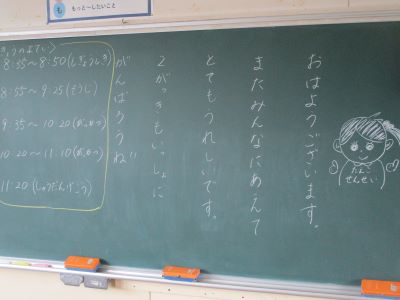 も もっと〜したいこと
おはようございます。
またみんなにあえて
とてもうれしいです。
2がっきもいっしょに
がんばろうね!!
きょうのよてい
8:35〜8:50(しぎょうしき)
8:55〜9:25(そうじ)
9:35〜10:20(がっかつ)
10:20〜11:10(がっかつ)
11:20(しゅうだんげこう)
たんご
せんせい